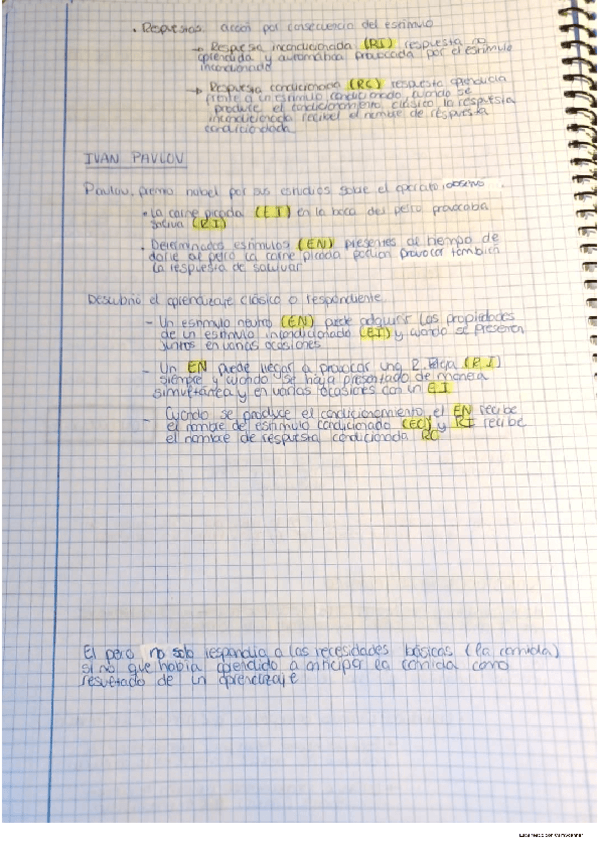 • Respuestas: acción por consecuencia del estímulo
→ Respuesta incondicionada (RI) respuesta no
aprendida y automática provocada por el estímulo
incondicionado
→ Respuesta condicionada (RC) respuesta aprendida
frente a un estímulo condicionado, cuando se
produce el condicionamiento clásico la respuesta
incondicionada recibe el nombre de respuesta
condicionada
IVAN PAVLOV
Pavlov, premio nobel por sus estudios sobre el aparato, observó
• La carne picada (EI) en la boca del perro provocaba
saliva (RI)
• Determinados estímulos (EN) presentes al tiempo de
darle al perro la carne picada podían provocar también
la respuesta de salivar
Descubrió el aprendizaje clásico o respondiente
- Un estímulo neutro (EN) puede adquirir las propiedades
de un estímulo incondicionado (EI) y cuando se presentan
juntos en varias ocasiones
- Un EN puede llegar a provocar una R. (RI)
siempre y cuando se haya presentado de manera
simultánea y en varias ocasiones con un EI
- Cuando se produce el condicionamiento, el EN recibe
el nombre de estímulo condicionado (EC) y RI recibe
el nombre de respuesta condicionada RC
El pero no solo respondía a las necesidades básicas (la comida)
si no que había aprendido a anticipar la comida como
resultado de un aprendizaje